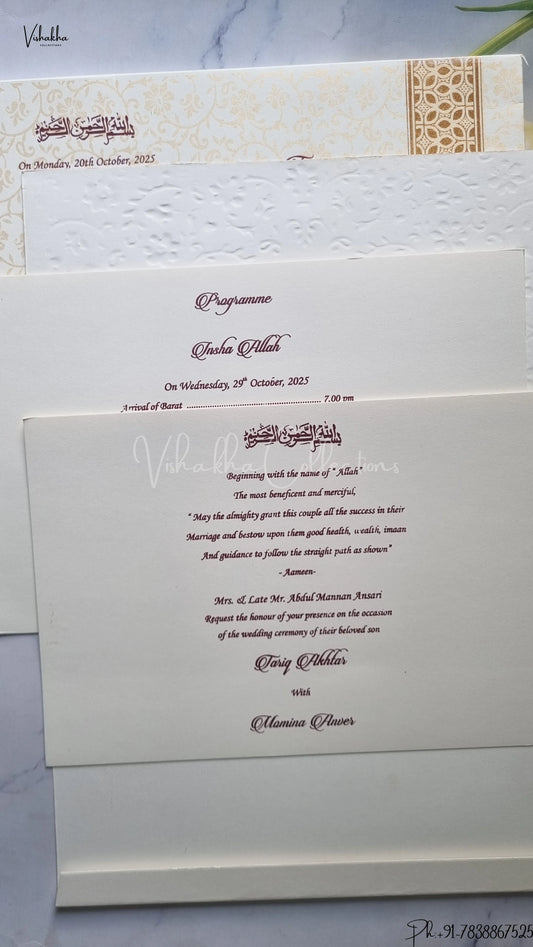 Vishakha
COLLECTIONS
بسم الله الرحمن الرحيم
On Monday, 20th October, 2025
Programme
Insha Allah
On Wednesday, 29th October, 2025
Arrival of Barat ........................................................ 7.00 pm
بسم الله الرحمن الرحيم
Vishakha Collections
Beginning with the name of " Allah"
The most beneficent and merciful,
" May the almighty grant this couple all the success in their
Marriage and bestow upon them good health, wealth, imaan
And guidance to follow the straight path as shown"
- Aameen-
Mrs. & Late Mr. Abdul Mannan Ansari
Request the honour of your presence on the occasion
of the wedding ceremony of their beloved son
Tariq Akhtar
With
Momina Anver
Ph.+91-7838867525